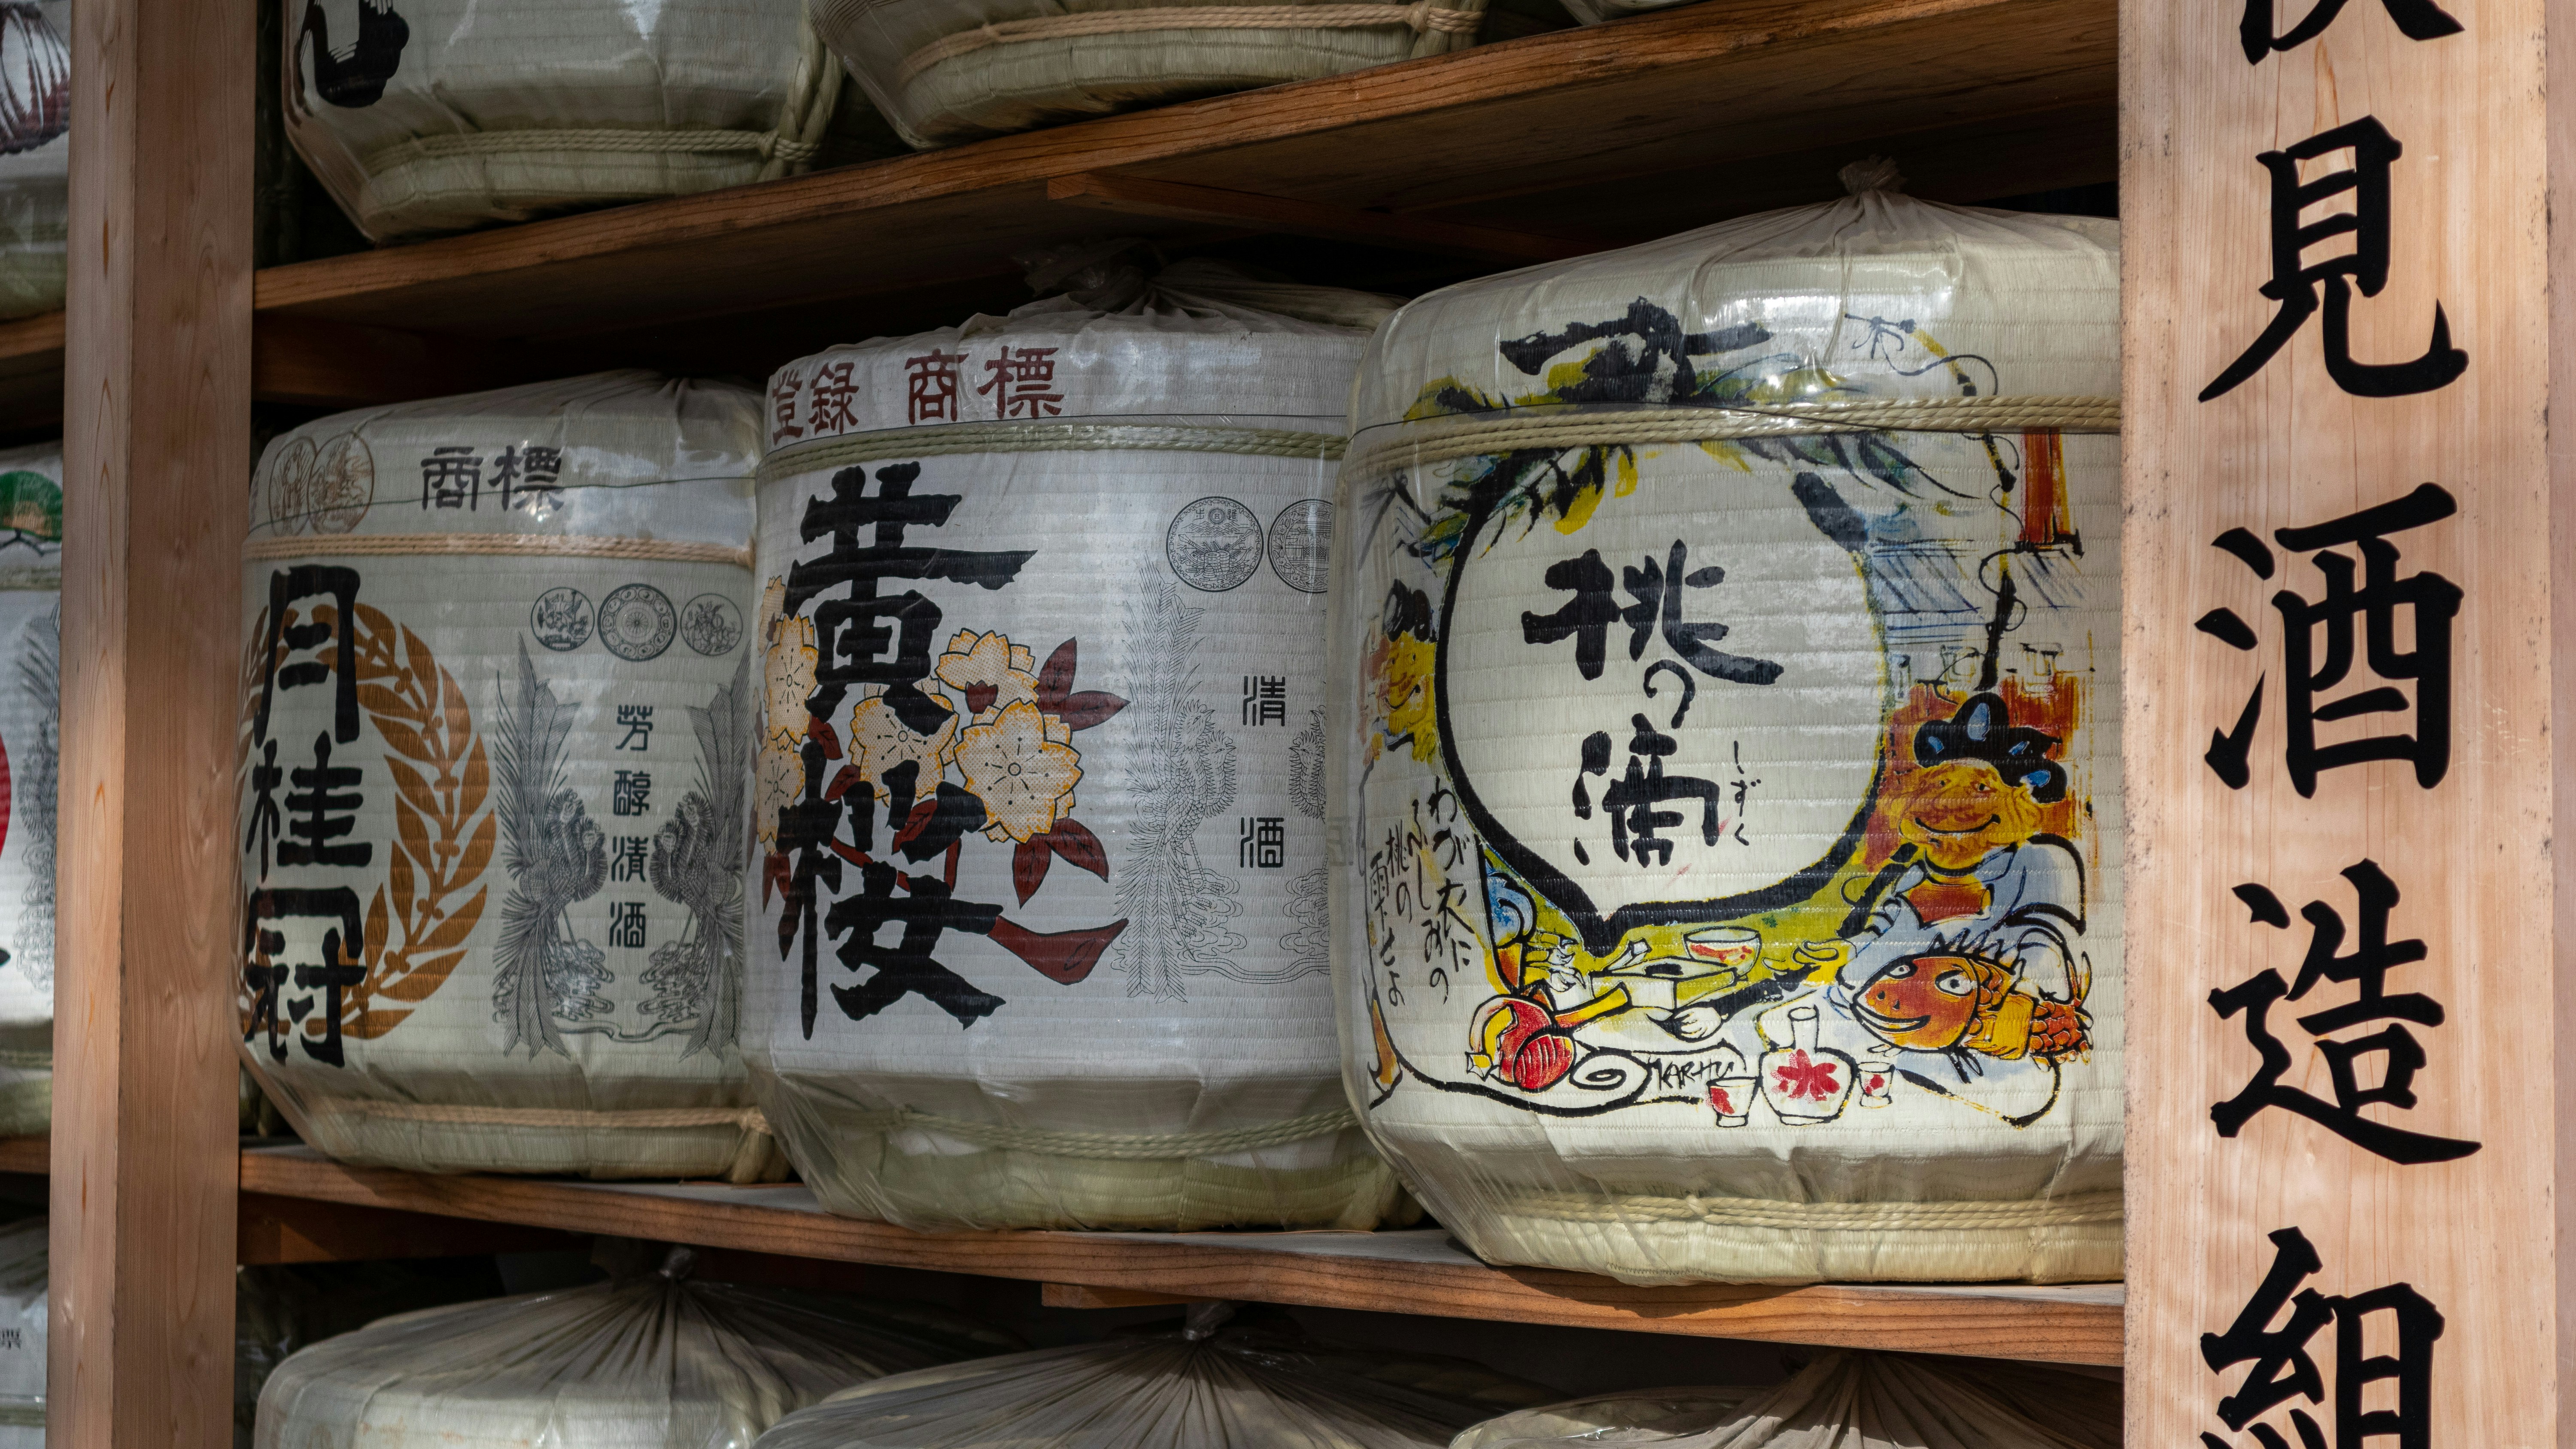 商標
月桂冠
芳醇清酒
登録商標
黄桜
清酒
桃の滴
しずく
わが衣に
ふしみの
桃の
雫せよ
KARHU
見酒造組